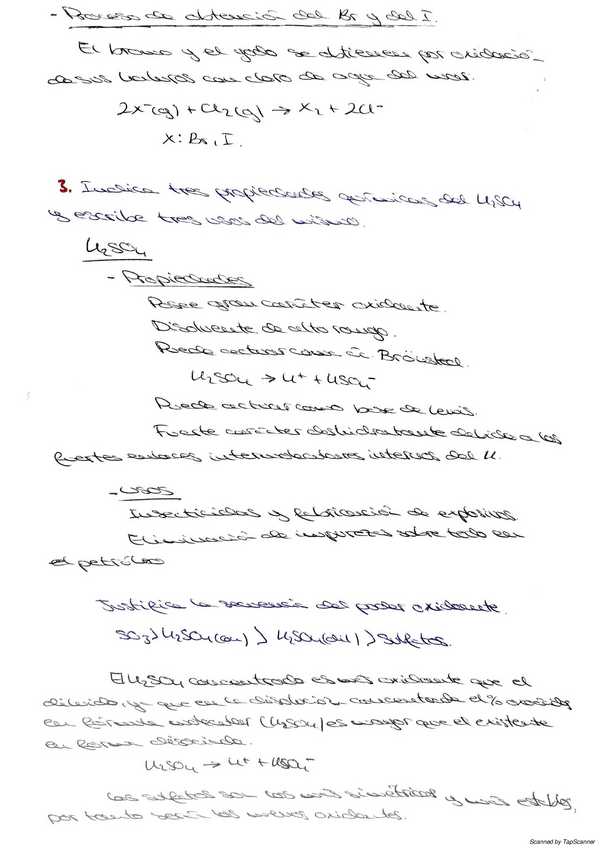 - Proceso de obtención del Br y del I.
El bromo y el yodo se obtienen por oxidació-
de sus haluros con cloro de agua del mar.
2X⁻(g) + Cl₂(g) → X₂ + 2Cl⁻
X: Br, I.
3. Indica tres propiedades químicas del H₂SO₄
y escribe tres usos del mismo.
H₂SO₄
- Propiedades
Posee gran carácter oxidante.
Disolvente de alto rango.
Puede actuar como ác. Brönsted.
H₂SO₄ → H⁺ + HSO₄⁻
Puede actuar como base de Lewis.
Fuerte carácter deshidratante debido a los
fuertes enlaces intermoleculares internos del H.
- Usos
Insecticidas y fabricación de explosivos.
Eliminación de impurezas sobre todo en
el petróleo
Justifica la secuencia del poder oxidante.
SO₃ > H₂SO₄(con) > H₂SO₄(dil) > Sulfatos.
El H₂SO₄ concentrado es más oxidante que el
diluido, ya que en la disolución concentrada el %
en forma molecular (H₂SO₄) es mayor que el existente
en forma disociada.
H₂SO₄ → H⁺ + HSO₄⁻
Los sulfatos son los más simétricos y más estables,
por tanto serán los menos oxidantes.
Scanned by TapScanner